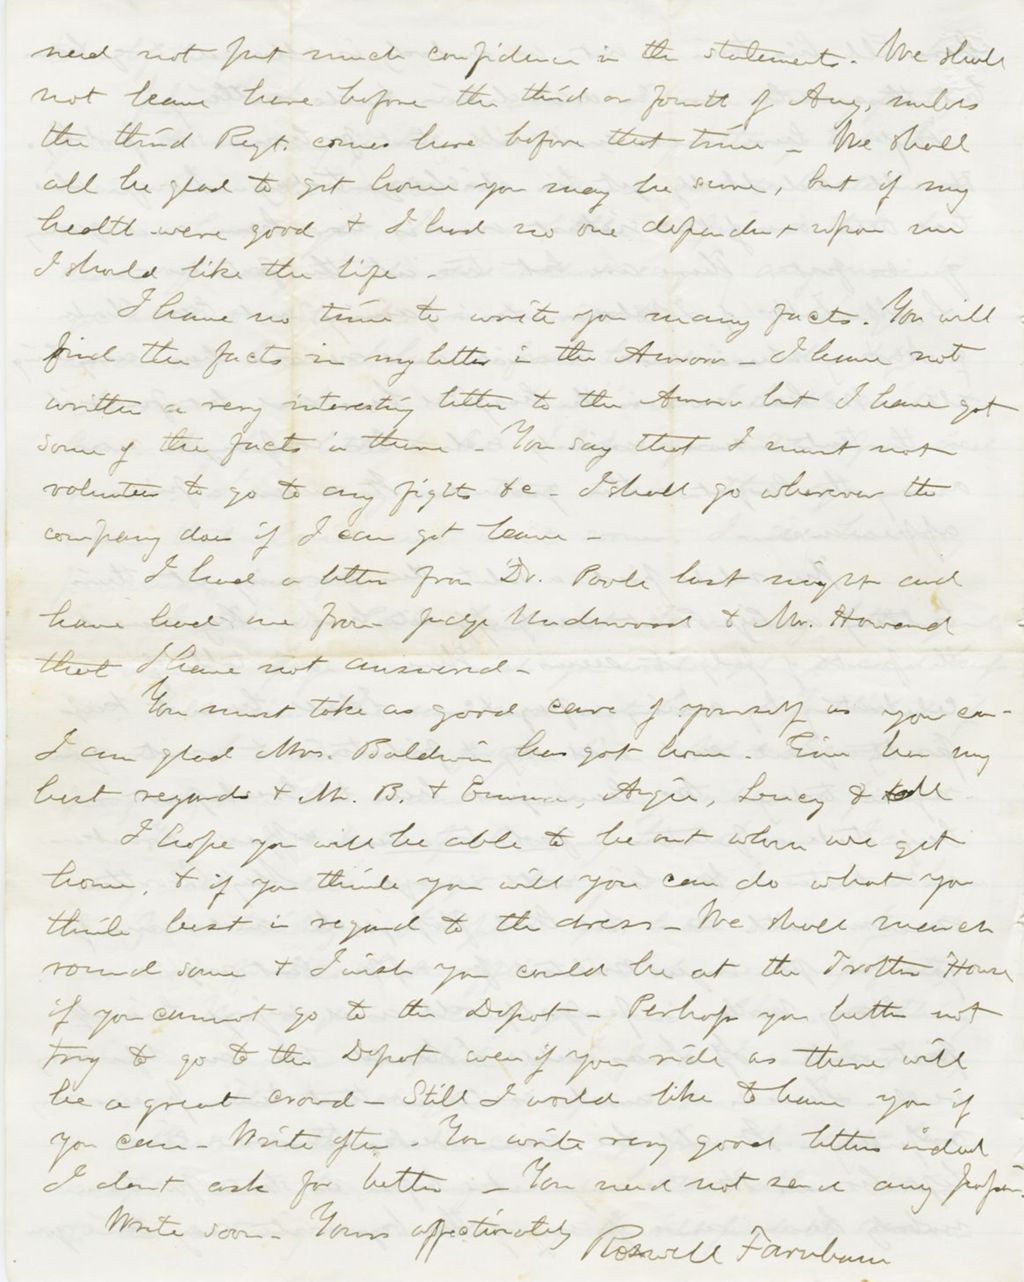 need not put much confidence in the statements. We shall
not leave here before the third or fourth of Aug, unless
the third Regt. comes here before that time – We shall
all be glad to get home you may be sure, but if my
health were good & I had no one dependent upon me
I should like the life –
I have no time to write you many facts. You will
find the facts in my letter in the Aurora – I have not
written a very interesting letter to the Aurora but I have got
some of the facts in there – You say that I must not
volunteer to go to any fights &c – I shall go wherever the
company does if I can get leave –
I had a letter from Dr. Poole last night and
have had one from Judge Underwood & Mr. Howard
that I have not answered –
You must take as good care of yourself as you can –
I am glad Mrs. Baldwin has got home. Give her my
best regards & Mr. B. & Emma, Angie, Lucy & all
I hope you will be able to be out when we get
home, & if you think you will you can do what you
think best in regard to the dress – We shall march
round some & I wish you could be at the Trotter House
if you cannot go to the Depot – Perhaps you better not
try to go to the Depot even if you ride as there will
be a great crowd – Still I would like to have you if
you can – Write often. You write very good letters indeed
I dont ask for better – You need not send any papers
Write soon – Yours affectionately
Roswell Farnham